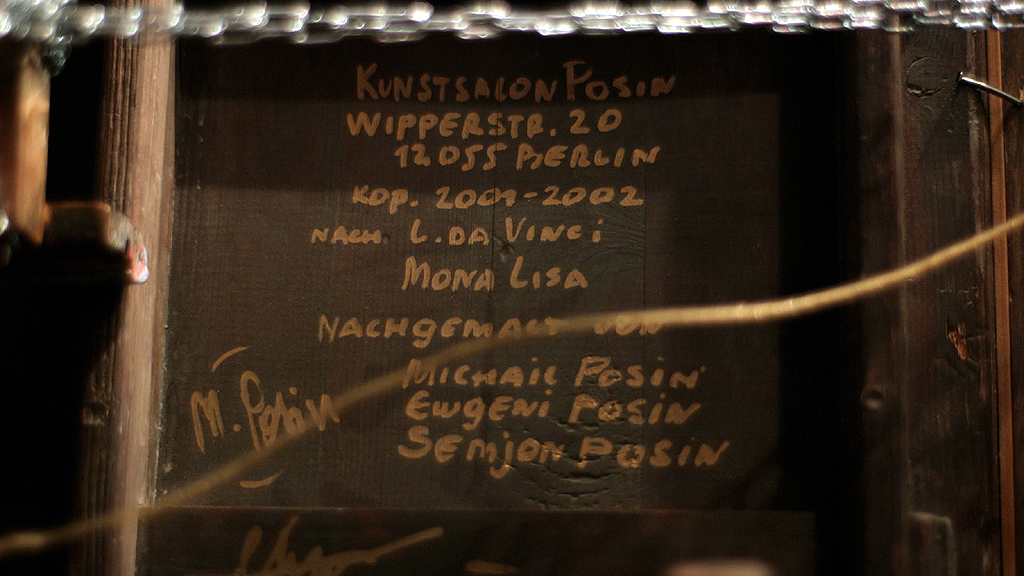 KUNSTSALON POSIN
WIPPERSTR. 20
12055 BERLIN
KOP. 2001-2002
NACH L. DA VINCi
MONA LISA
NACHGEMALT VON
MICHAIL POSIN
EWGENI POSIN
SEMJON POSIN
M. Posin